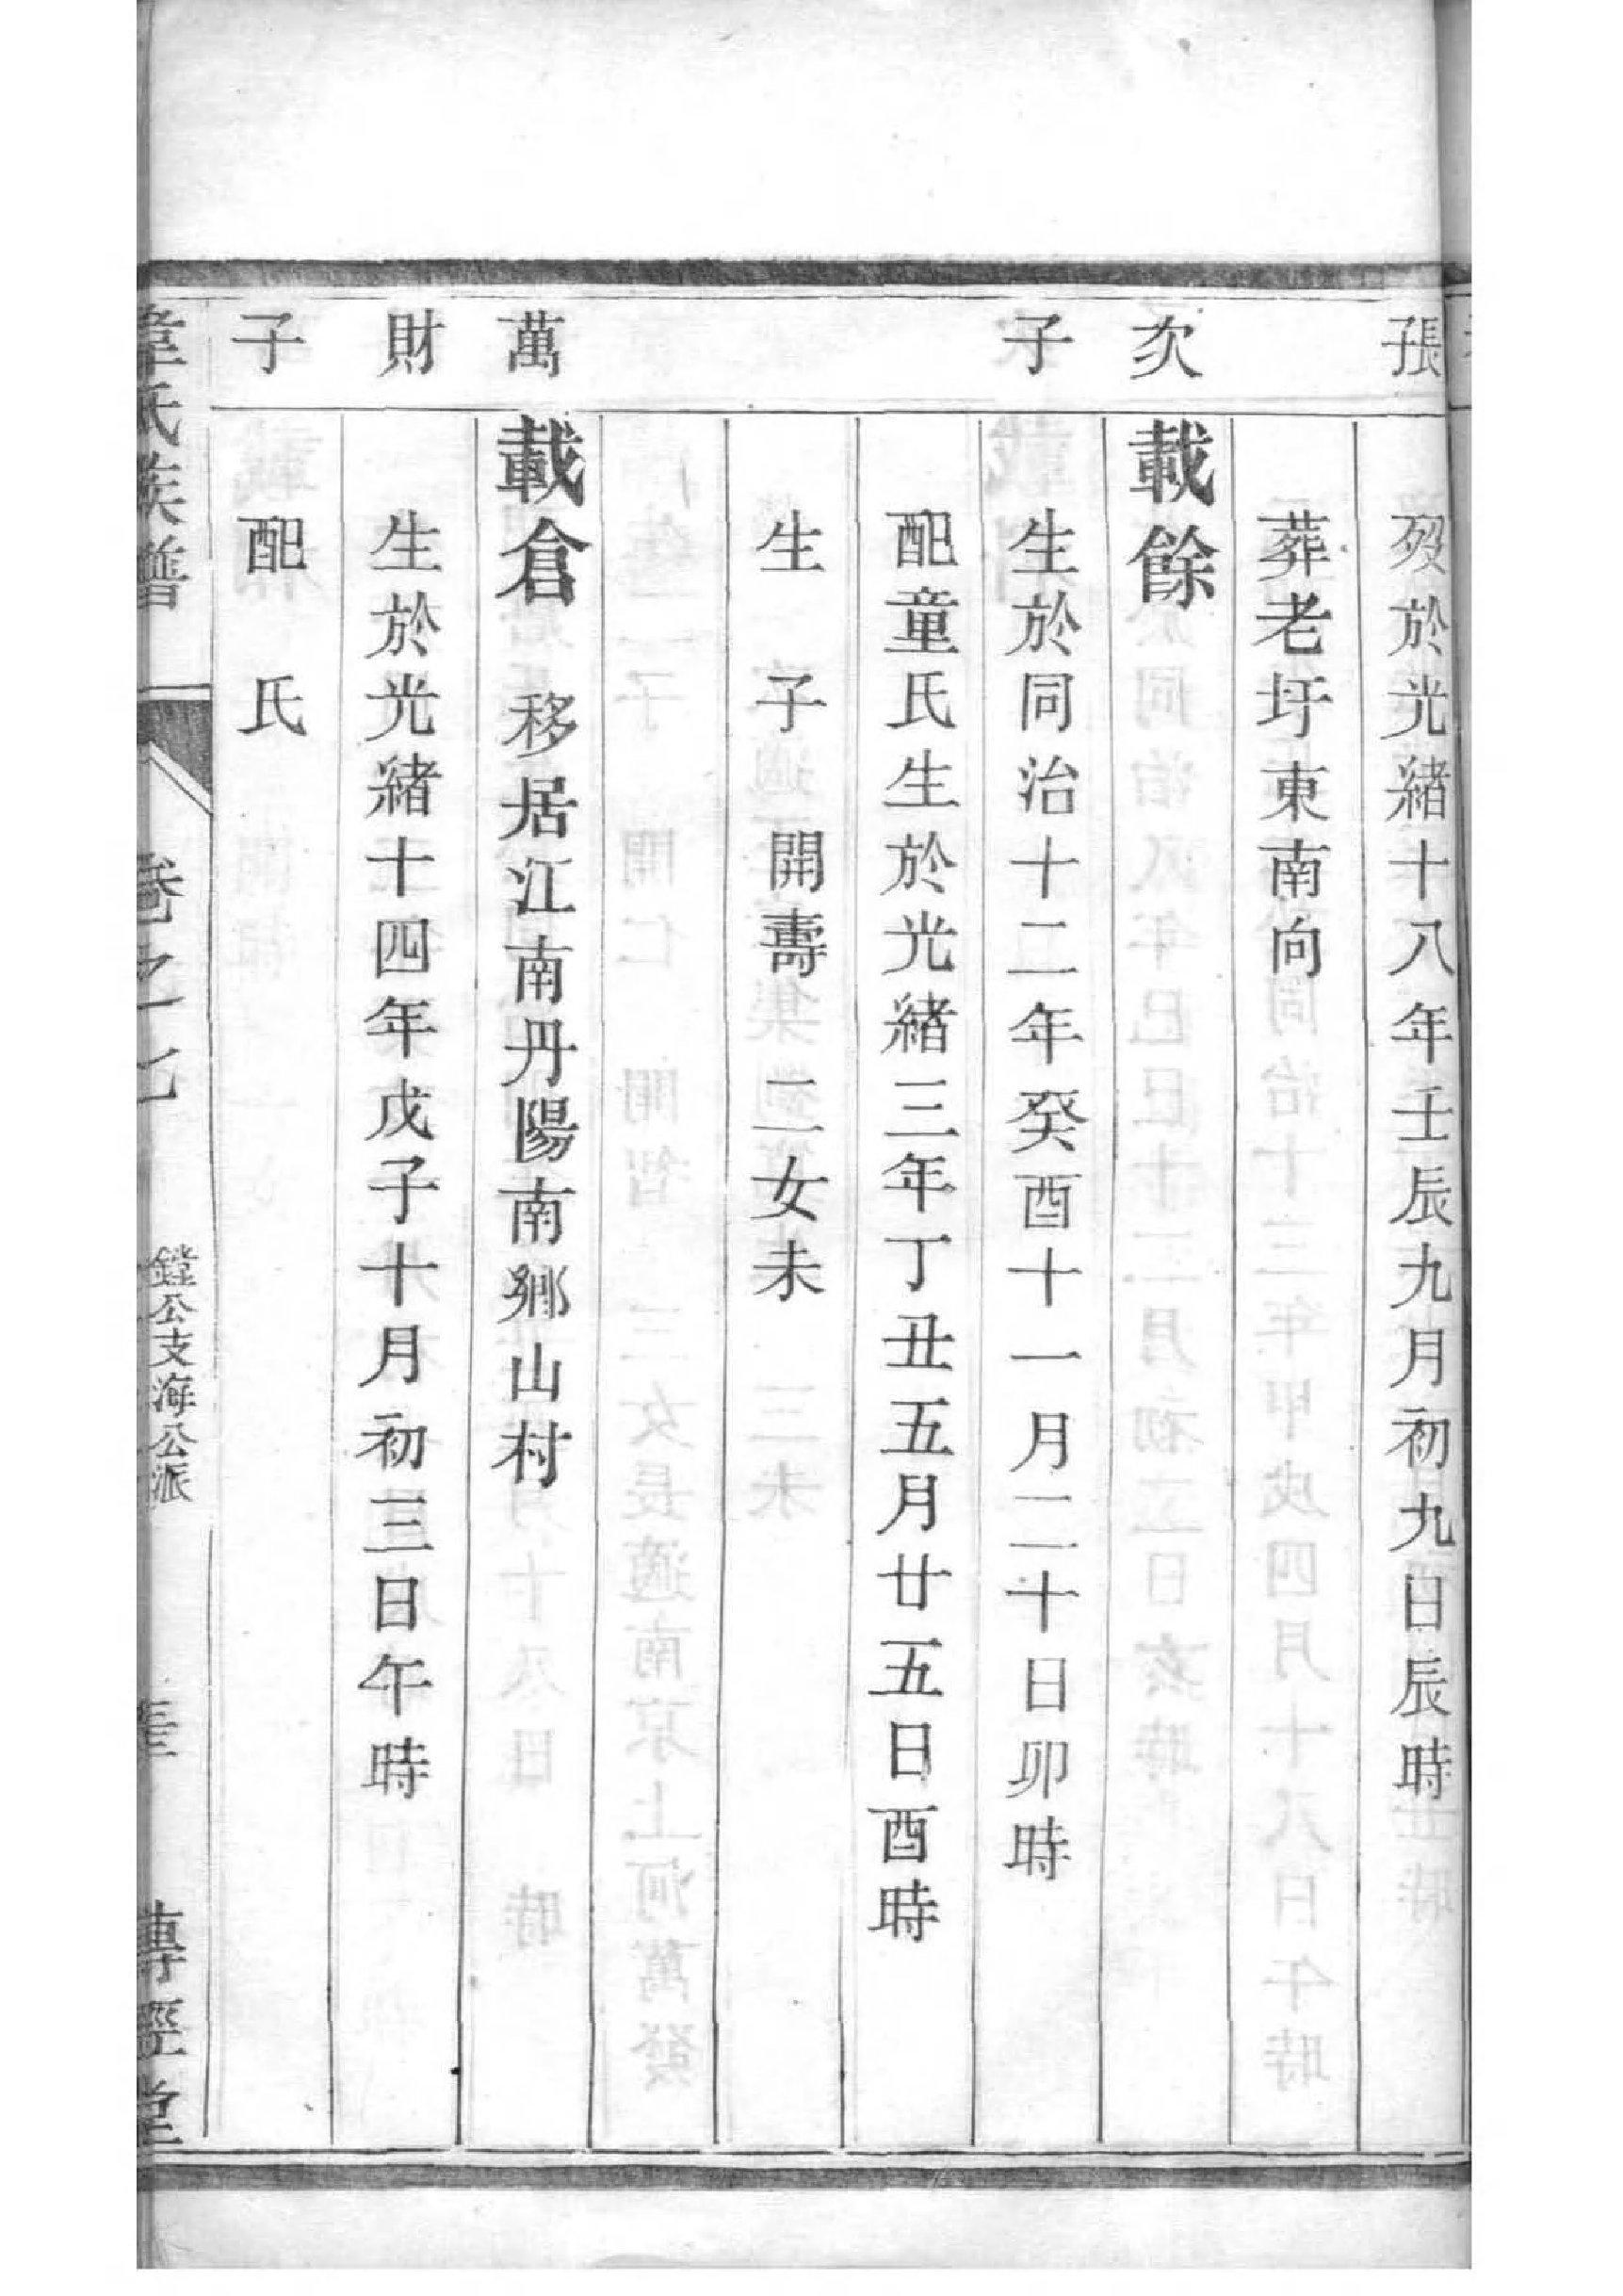 張
歿於光緒十八年壬辰九月初九日辰時
葬老圩東南向
次
載餘
子
生於同治十二年癸酉十一月二十日卯時
配童氏生於光緒三年丁丑五月廿五日酉時
生 子 開壽 二女未
萬
載倉 移居江南丹陽南鄉山村
財
生於光緒十四年戊子十月初三日午時
子
配 氏
韋氏族譜 卷之七 鏜公支海公派 傳經堂